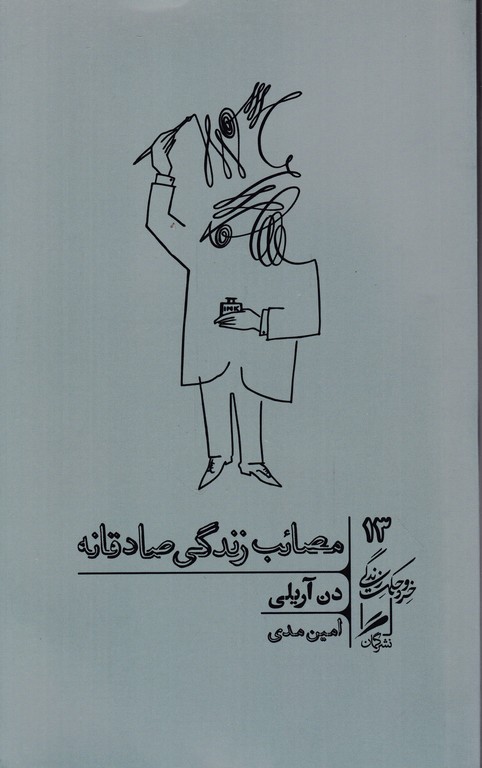 INK
۱۳
مصائب زندگی صادقانه
دن آریلی
امین مدی
خرد و حکمت زندگی
نشر گمان